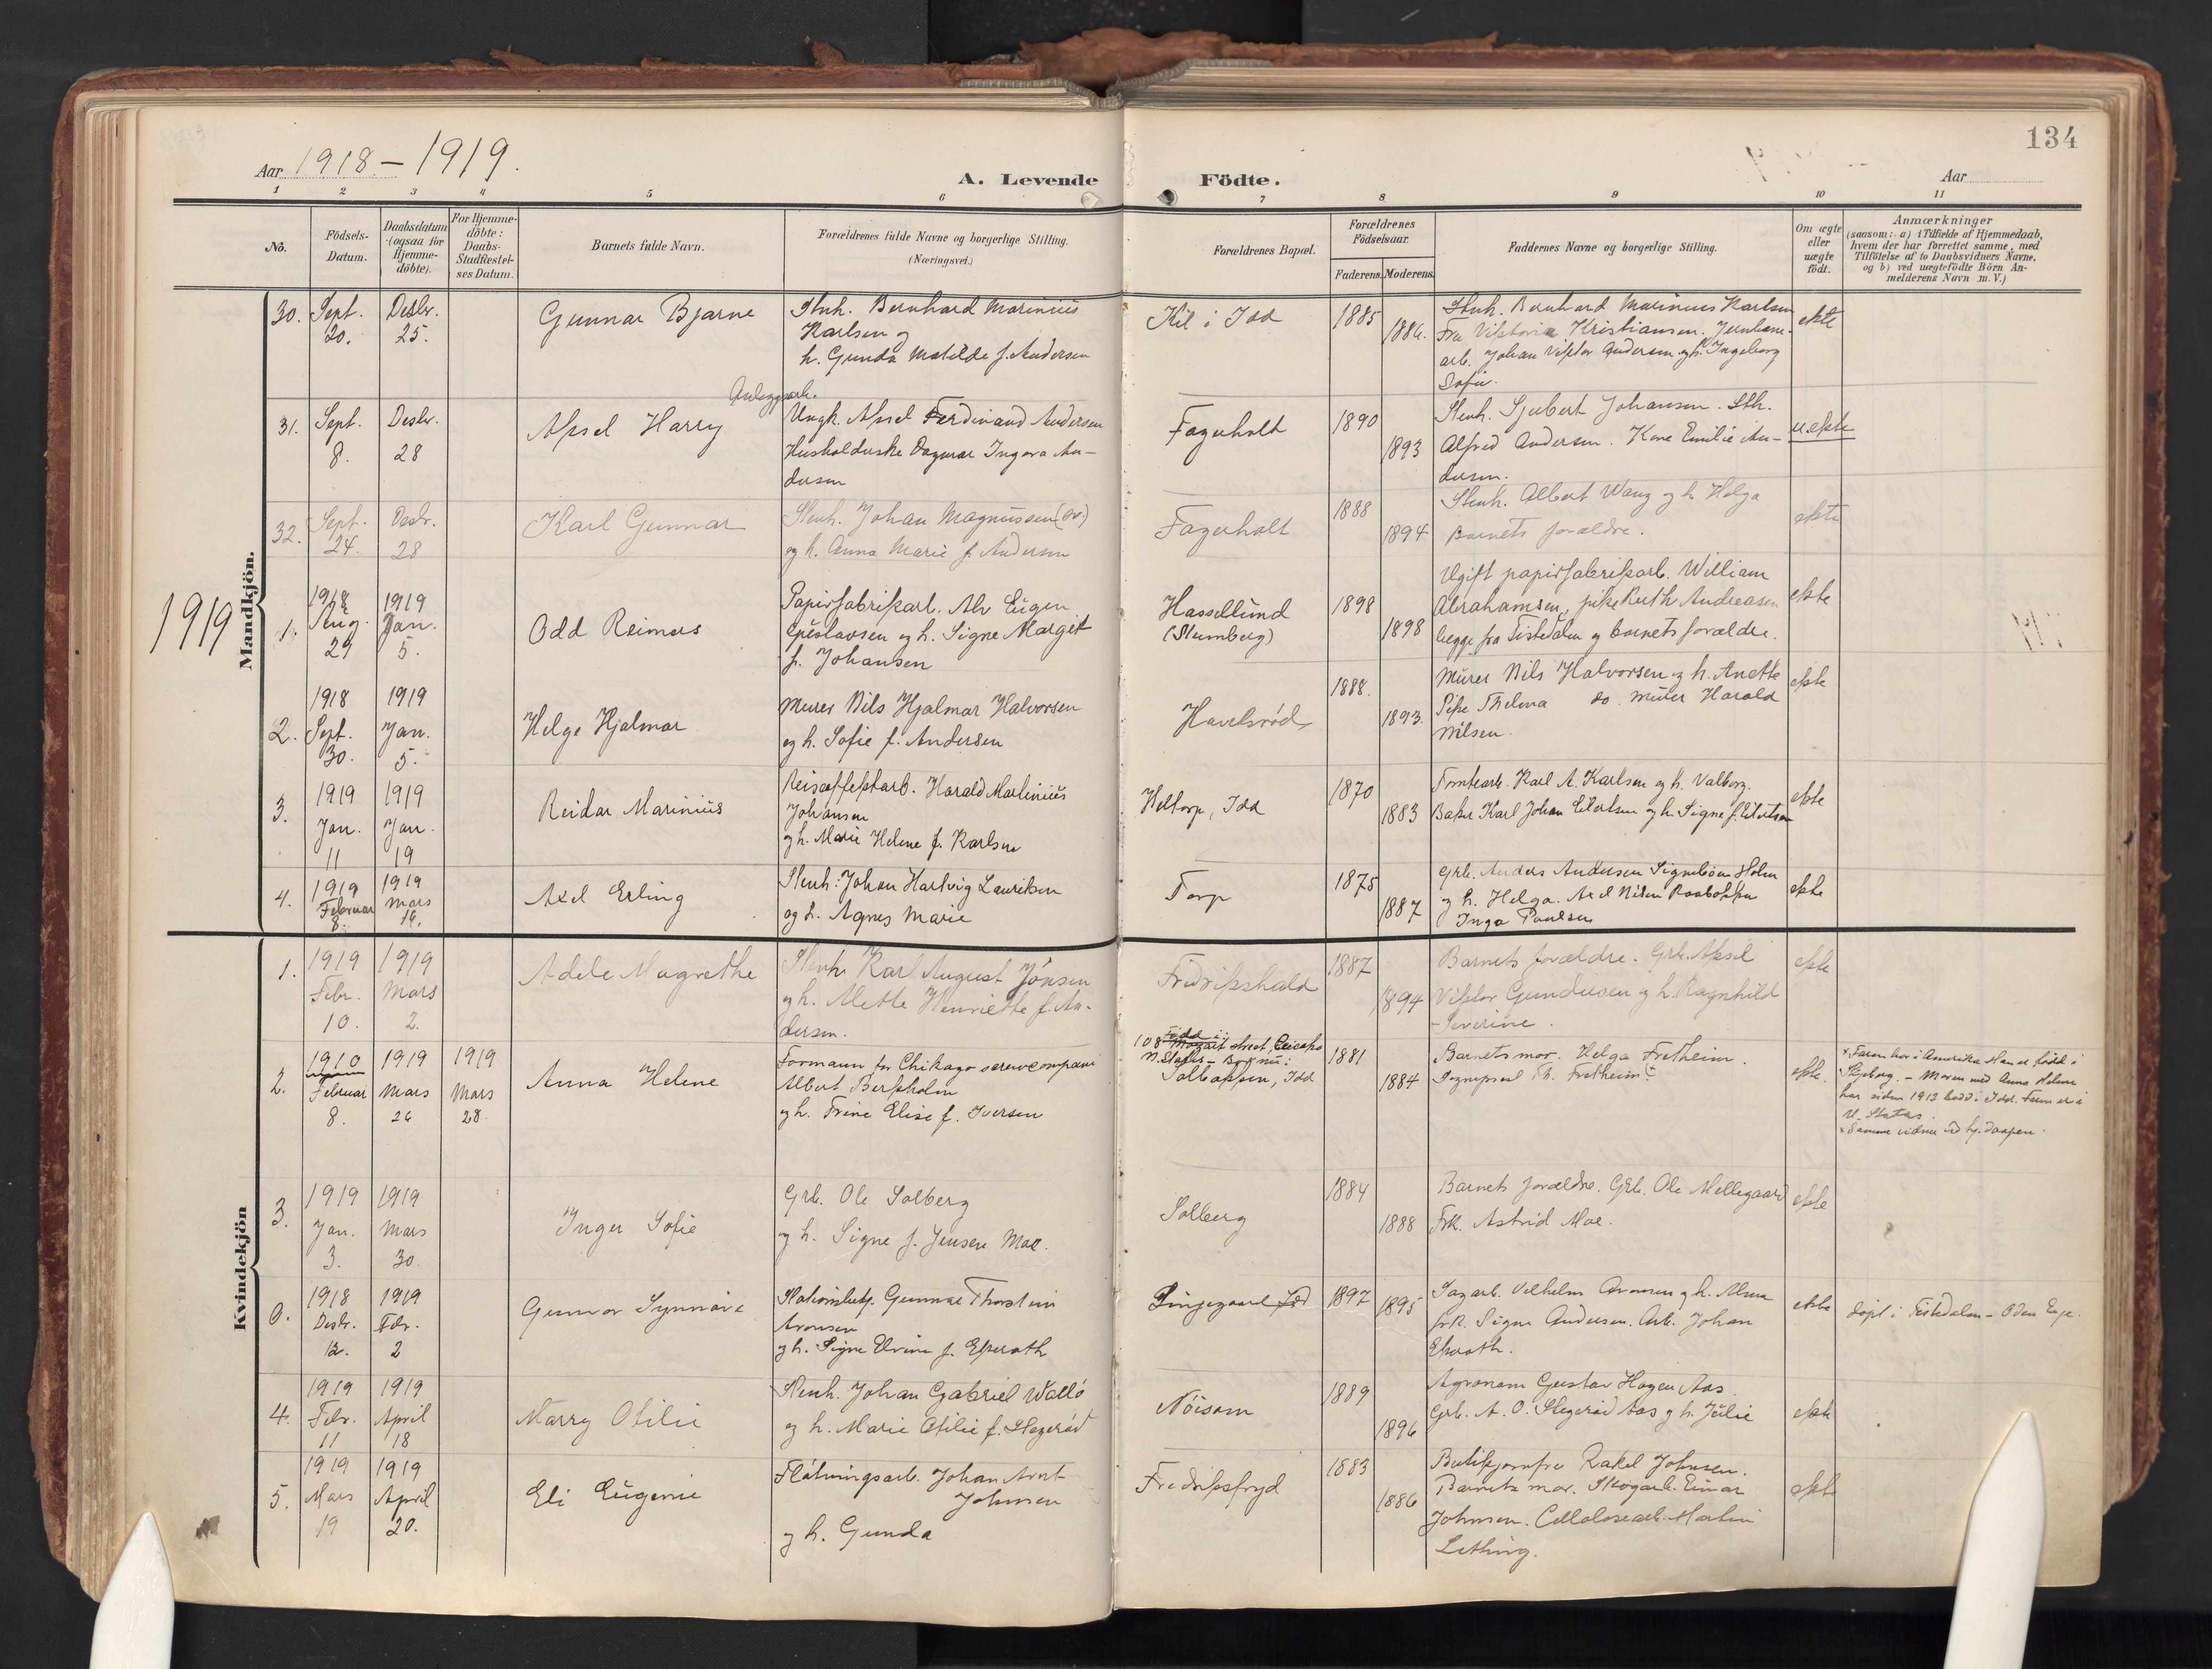 134
Aar 1918 – 1919.
A. Levende Födte.
Aar
1 2 3 4 5 6 7 8 9 10 11
Nö.
Födsels-Datum.
Daabsdatum (ogsaa för Hjemmedöbte).
For Hjemmedöbte: Daabs-Stadfæstelses Datum.
Barnets fulde Navn.
Forældrenes fulde Navne og borgerlige Stilling.
(Næringsvei.)
Forældrenes Bopæl.
Forældrenes Födselsaar.
Faderens. Moderens.
Faddernes Navne og borgerlige Stilling.
Om ægte eller uægte födt.
Anmærkninger
(saasom: a) i Tilfælde af Hjemmedaab,
hvem der har forrettet samme, med
Tilföielse af to Daabsvidners Navne,
og b) ved uægtefödte Börn Anmelderens Navn m.V.)
Mandkjön.
30. Sept. 20. Desbr. 25.
Gunnar Bjarne
Stnh. Bernhard Marinius
Karlsen og
h. Gunda Matilde f. Andersen
Kil i Idd
1885 1886.
Stnh. Bernhard Marinius Karlsen
Fru Viktoria Kristiansen. Jernbane-
arb. Johan Viktor Andersen og h. Ingeborg
Sofie.
ekte
31. Sept. 8. Desbr. 28
Aksel Harry
Anleggsarb.
Ungk. Aksel Ferdinand Andersen
Husholderske Dagmar Ingora An-
dersen
Fagerholt
1890 1893
Stenh. Sjubert Johansen. Sth.
Alfred Andersen. Kone Emilie An-
dersen.
u.ekte
32. Sept. 24. Desbr. 28
Karl Gunnar
Stenh. Johan Magnussen (sv.)
og h. Anna Marie f. Andersen
Fagerholt
1888 1894
Stenh. Albert Wang og h. Helga
Barnets forældre.
ekte
1919
1. 1918 Aug. 29 1919 Jan. 5.
Odd Reimars
Papirfabrikarb. Alv Eugen
og h. Signe Marget
f. Johansen
Hasselund
(Stumberg)
1898 1898
Ugift papirfabrikarb. William
Abrahamsen, pike Ruth Andreasen
begge fra Tistedalen og barnets forældre.
ekte
2. 1918 Sept. 30. 1919 Jan. 5.
Helge Hjalmar
Murer Nils Hjalmar Halvorsen
og h. Sofie f. Andersen
Havelsrød
1888. 1893.
Murer Nils Halvorsen og h. Anette
Pike Thelma do. murer Harald
Nilsen.
ekte
3. 1919 Jan. 11 1919 Jan. 19
Reidar Marinius
Harald Marlinius
Johansen
og h. Marie Helene f. Karlsen
Heltorp, Idd
1870 1883
Tomtearb. Karl A. Karlsen og h. Valborg.
Baker Karl Johan Eilertsen og h. Signe f. Eilertsen
ekte
4. 1919 Februar 8. 1919 Mars 16.
Axel Erling
Stenh: Johan Hartvig Lauritsen
og h. Agnes Marie
Torp
1875 1887
Grb. Anders Andersen Signebøen Holm
og h. Helga. Axel Nilsen
Inga Paulsen
ekte
Kvindekjön
1. 1919 Febr. 10. 1919 Mars 2.
Adele Magrethe
Stenh. Karl August Jónsen
og h. Alette Henriette f. An-
dersen.
Fredrikshald
1887 1894
Barnets forældre. Grb. Aksel
Viktor Gundersen og h. Ragnhild
Severine.
ekte
2. 1910 Februar 8. 1919 Mars 26 1919 Mars 28.
Anna Helene
Formann for Chikago screwcompani
Albert Berkholm
og h. Trine Elise f. Iversen
Född i:
108 Mozart street, Chicago
N. States – Bor nu:
Solbakken, Idd
1881 1884
Barnets mor. Helga Fretheim.
Sogneprest Th. Fretheim.
ekte.
* Faren bor i Amerika. Han er født i
Skjeberg. – Moren med Anna Helene
har siden 1913 bodd i Idd. Faren er i
U. States.
* Samme vidner ved hj.daapen.
3. 1919 Jan. 3. 1919 Mars 30.
Inger Sofie
Grb. Ole Solberg
og h. Signe f. Jensen Moe.
Solberg
1884 1888
Barnets forældre. Grb. Ole Mellegaard
Frk. Astrid Moe.
ekte
0. 1918 Desbr. 12. 1919 Febr. 2
Gunvor Synnøve
Stationsbetj. Gunnar Thorstein
Aronsen
og h. Signe Elvine f. Ekerath
Lingegaard Idd
1897 1895
Sagarb. Vilhelm Aronsen og h. Alma
frk. Signe Andersen. Arb. Johan
Ekerath.
ekte
døpt i Tistedalen –
4. 1919 Febr. 11 1919 April 18
Marry Otilie
Stenh. Johan Gabriel Wallø
og h. Marie Otilie f. Stegerød
Nöisom
1889 1896
Agronom Gustav Hagen Aas.
Grb. A. O. Stegerød Aas og h. Julie
ekte
5. 1919 Mars 19 1919 April 20.
Eli Eugenie
Fløtningsarb. Johan Arnt
Johnsen
og h. Gunda
Fredriksfryd
1883 1886
Butikjomfru Rakel Johnsen.
Barnets mor. Skogarb. Einar
Johnsen. Cellulosearb. Martin
Lething.
ekte